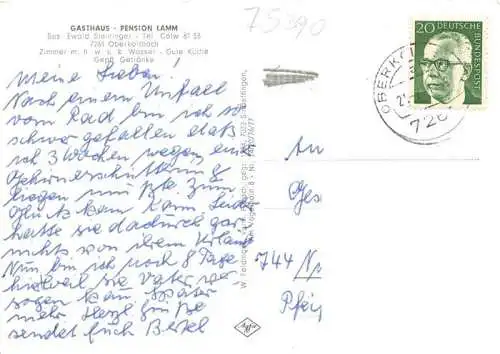 75390
GASTHAUS · PENSION LAMM
Bes. Ewald Steininger · Tel. Calw 81 58
7261 Oberkollbach
Zimmer m. fl. w. u. k. Wasser · Gute Küche
Gepfl. Getränke
20 DEUTSCHE BUNDESPOST
OBERKOL
726
Meine Lieben!
Nach einem Unfall
vom Rad bin ich so
schwer gefallen daß
ich 3 Wochen wegen eine
Gehirnerschütterung
liegen mußte. Zum
Glück kam
hatte sie dadurch gar
nichts von ihrem Urlaub
Nun bin ich noch 8 Tage
hier weil sie Vater ver-
sorgen kam
mehr Herzl. Grüße
sendet Euch Bertel
An
Ges
744 N
Pfei
Agfa